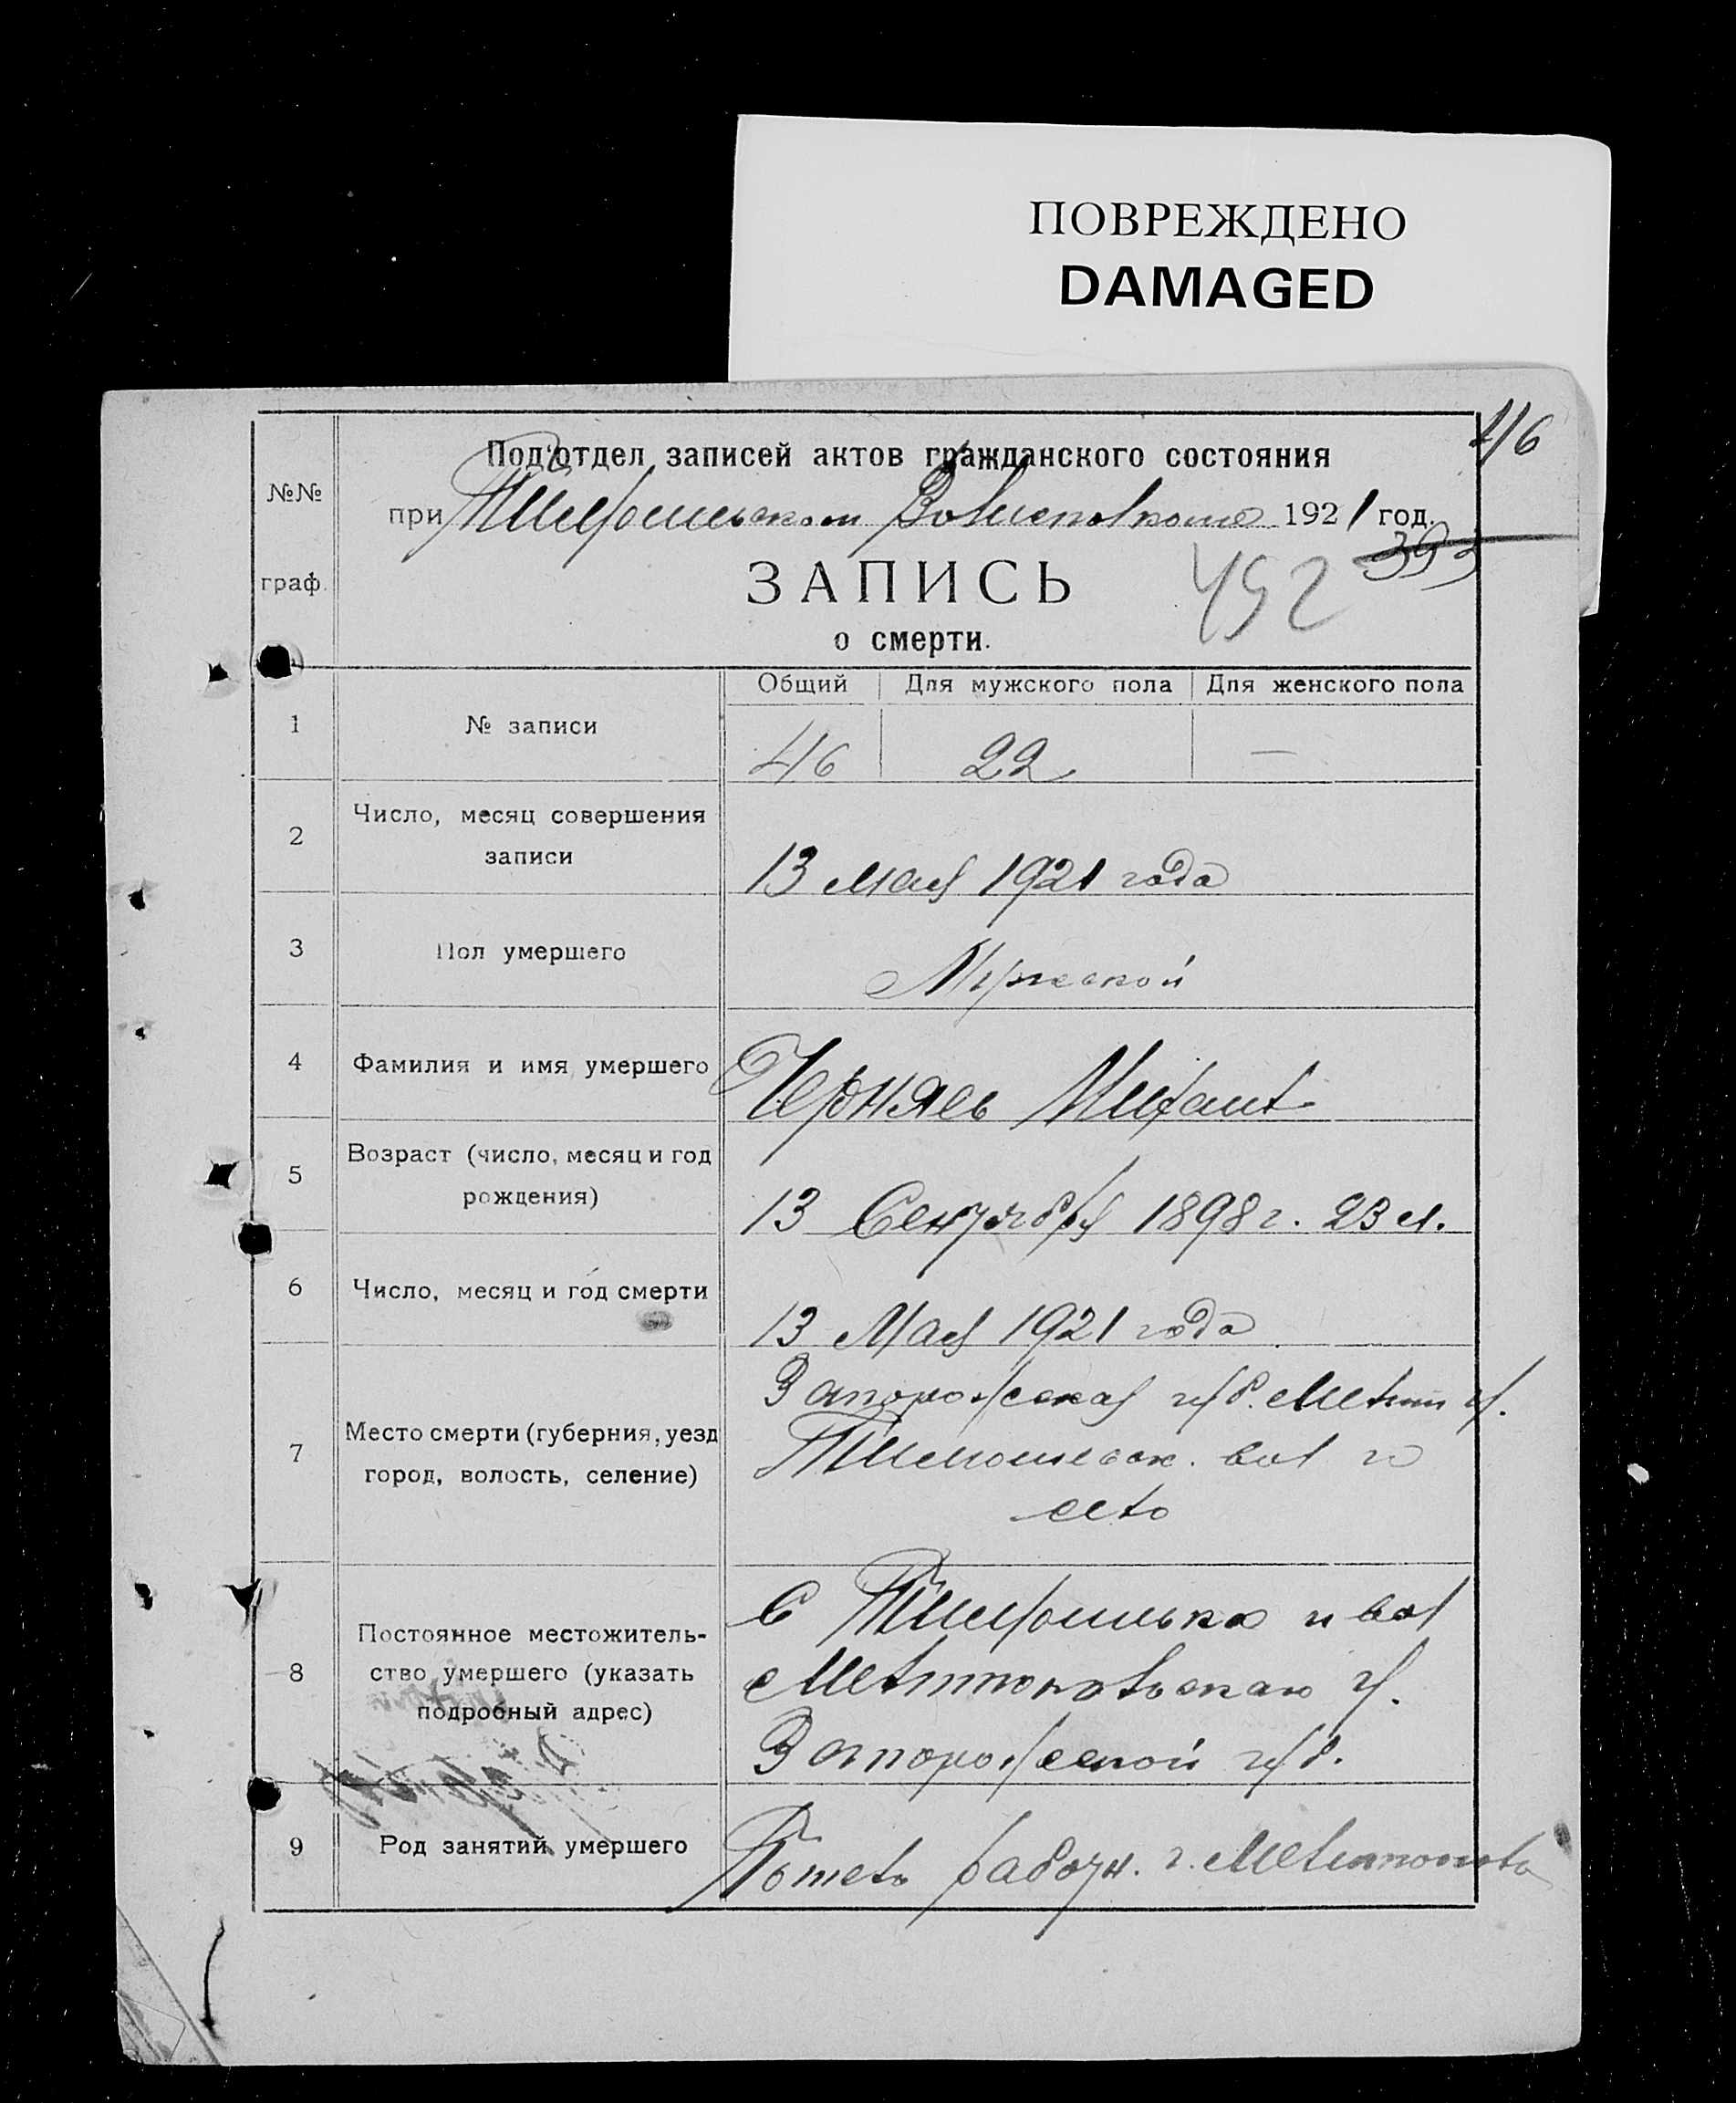 ПОВРЕЖДЕНО
DAMAGED
46
№№ граф.
Под'отдел записей актов гражданского состояния
при Тимошевском Волисполкоме 1921 год.
393
ЗАПИСЬ
452
о смерти.
Общий Для мужского пола Для женского пола
1 № записи 46 22 —
2 Число, месяц совершения записи
13 мая 1921 года
3 Пол умершего
Мужской
4 Фамилия и имя умершего
Черняев Михаил
5 Возраст (число, месяц и год рождения)
13 Сентября 1898 г. 23 л.
6 Число, месяц и год смерти
13 Мая 1921 года
7 Место смерти (губерния, уезд город, волость, селение)
Запорожская губ. Мелит у.
Тимошевск. вол и
село
8 Постоянное местожительство умершего (указать подробный адрес)
С Тимошовка и вол
Мелитопольскаго у.
Запорожской губ.
9 Род занятий умершего
рабоч. г. Мелитополь